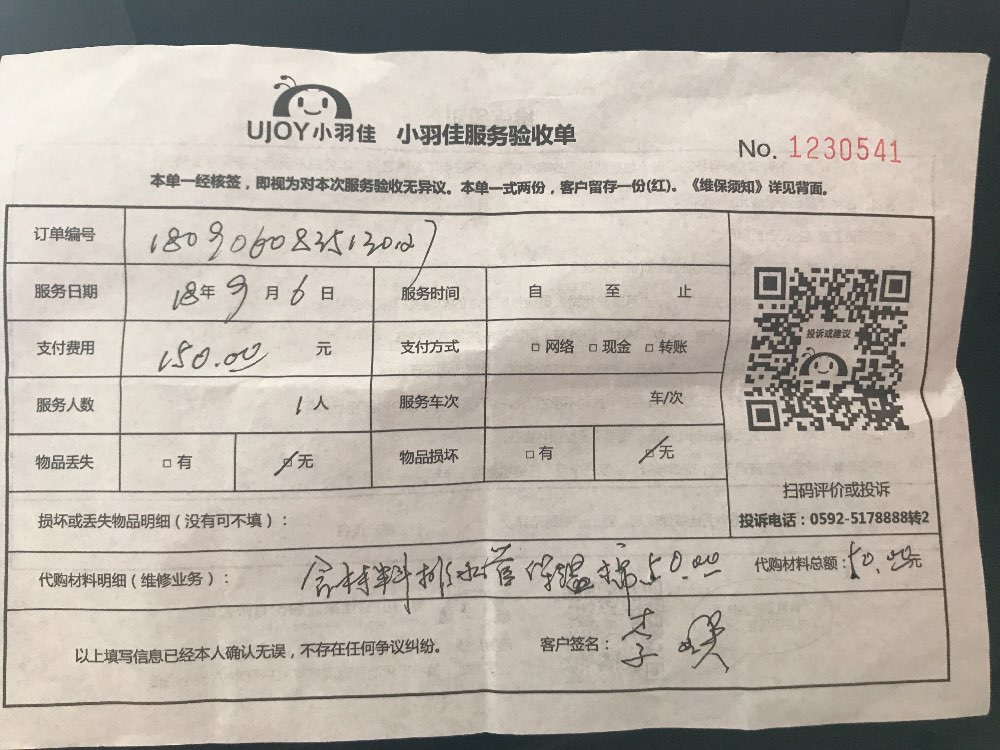 UJOY小羽佳 小羽佳服务验收单
No. 1230541
本单一经核签，即视为对本次服务验收无异议。本单一式两份，客户留存一份(红)。《维保须知》详见背面。
订单编号
服务日期 18年9月6日 服务时间 自 至 止
支付费用 150.00 元 支付方式 □ 网络 □ 现金 □ 转账
服务人数 1人 服务车次 车/次
物品丢失 □ 有 □ 无 物品损坏 □ 有 □ 无
投诉或建议
扫码评价或投诉
投诉电话：0592-5178888转2
损坏或丢失物品明细（没有可不填）：
代购材料明细（维修业务）： 含材料排水管保温棉50.00 代购材料总额：50.00元
以上填写信息已经本人确认无误，不存在任何争议纠纷。 客户签名：李